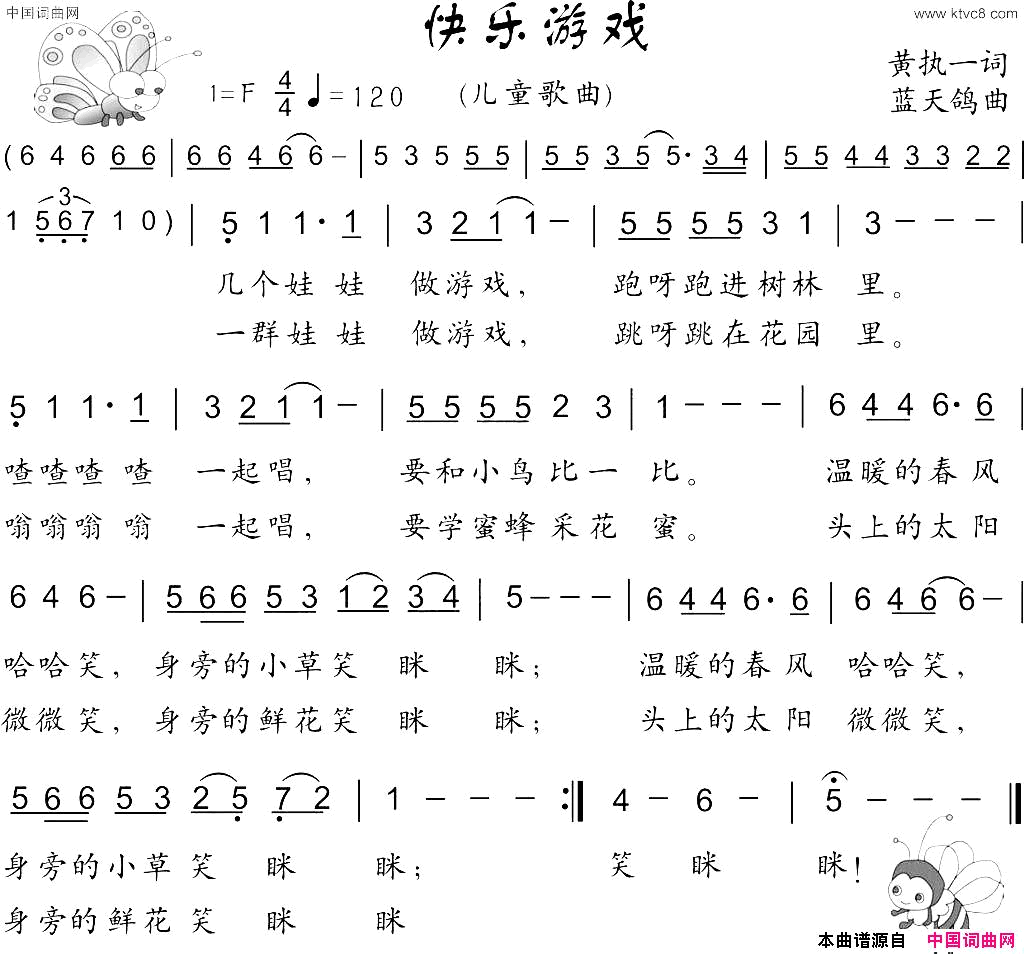 中国词曲网
快乐游戏
www.ktvc8.com
1=F 4/4 ♩=120 (儿童歌曲)
黄执一词
蓝天鸽曲
(6 4 6 6 6 | 6 6 4 6 6 – | 5 3 5 5 5 | 5 5 3 5 5· 3 4 | 5 5 4 4 3 3 2 2 |
3
1 5 6 7 1 0) | 5 1 1· 1 | 3 2 1 1 – | 5 5 5 5 3 1 | 3 – – – |
几个娃娃 做游戏, 跑呀跑进树林 里。
一群娃娃 做游戏, 跳呀跳在花园 里。
5 1 1· 1 | 3 2 1 1 – | 5 5 5 5 2 3 | 1 – – – | 6 4 4 6· 6 |
喳喳喳喳 一起唱, 要和小鸟比一 比。 温暖的春风
嗡嗡嗡嗡 一起唱, 要学蜜蜂采花 蜜。 头上的太阳
6 4 6 – | 5 6 6 5 3 1 2 3 4 | 5 – – – | 6 4 4 6· 6 | 6 4 6 6 – |
哈哈笑, 身旁的小草笑 眯 眯; 温暖的春风 哈哈笑,
微微笑, 身旁的鲜花笑 眯 眯; 头上的太阳 微微笑,
5 6 6 5 3 2 5 7 2 | 1 – – – :‖ 4 – 6 – | 5 – – – ‖
身旁的小草笑 眯 眯; 笑 眯 眯!
身旁的鲜花笑 眯 眯
本曲谱源自 中国词曲网